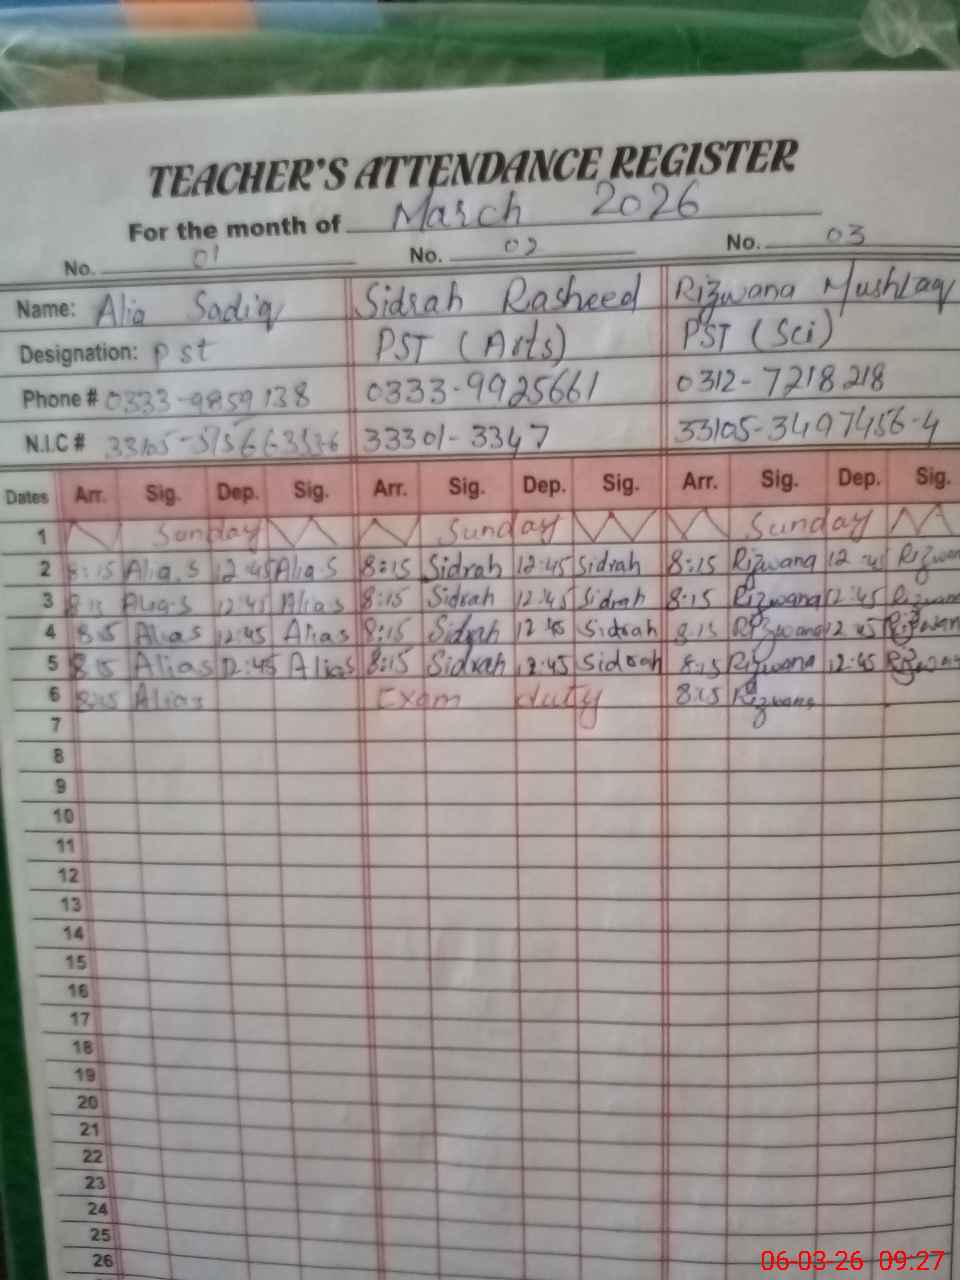 TEACHER'S ATTENDANCE REGISTER
For the month of March 2026
No. 01 No. 02 No. 03
Name: Alia Sadiq Sidrah Rasheed Rizwana Mushtaq
Designation: pst PST (Arts) PST (Sci)
Phone # 0333-9859138 0333-9925661 0312-7218218
N.I.C # 33301-3347 33105-3497456-4
Dates Arr. Sig. Dep. Sig. Arr. Sig. Dep. Sig. Arr. Sig. Dep. Sig.
1 Sunday Sunday Sunday
2 8:15 Alia.S 12:45 Alia S 8:15 Sidrah 12:45 Sidrah 8:15 Rizwana 12:45 Rizwan
3 8:15 Alia.S 12:45 Alias 8:15 Sidrah 12:45 Sidrah 8:15 Rizwana 12:45 Rizwana
4 8:15 Alias 12:45 Alias 8:15 Sidrah 12:45 Sidrah 8:15 Rizwana 12:45 Rizwan
5 8:15 Alias 12:45 Alias 8:15 Sidrah 12:45 Sidrah 8:15 Rizwana 12:45 Rizwan
6 8:15 Alias Exam duty 8:15 Rizwana
7
8
9
10
11
12
13
14
15
16
17
18
19
20
21
22
23
24
25
26
06-03-26 09:27